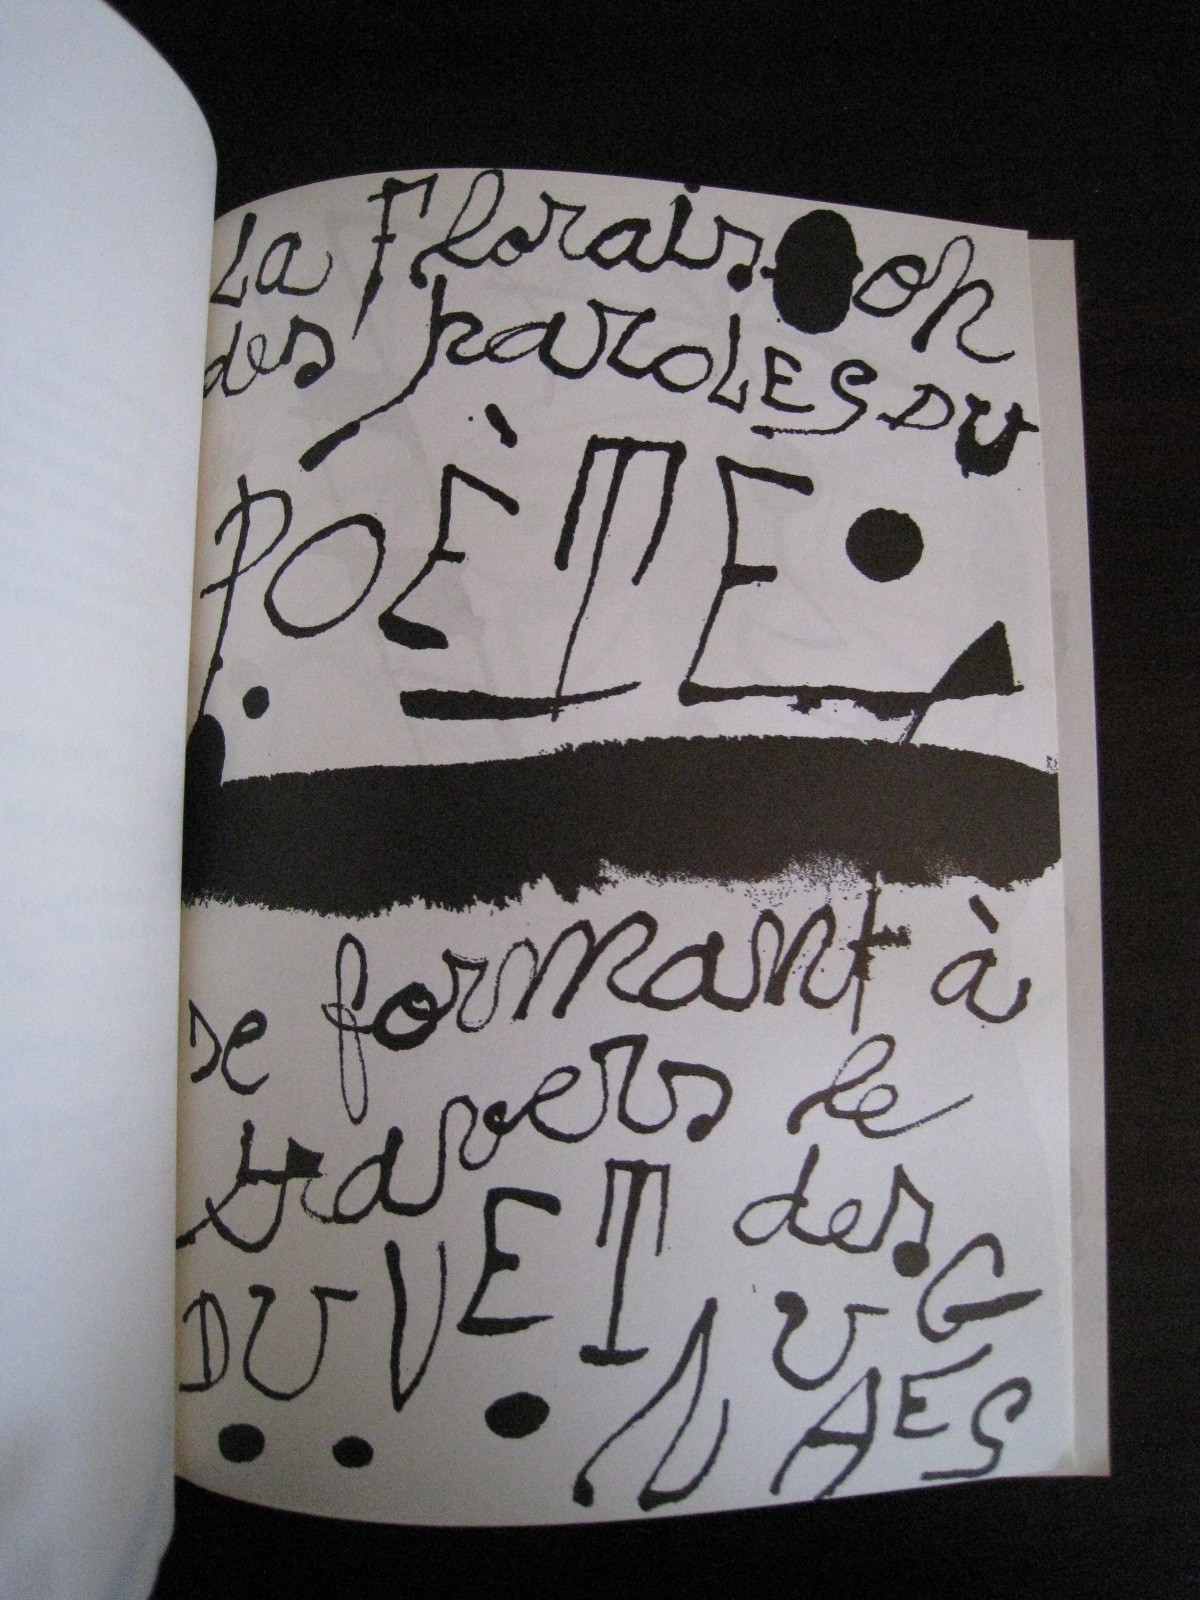 La Floraison
des paroLES DU
POÈTE
se formant à
travers le
DUVET des
NUAGES